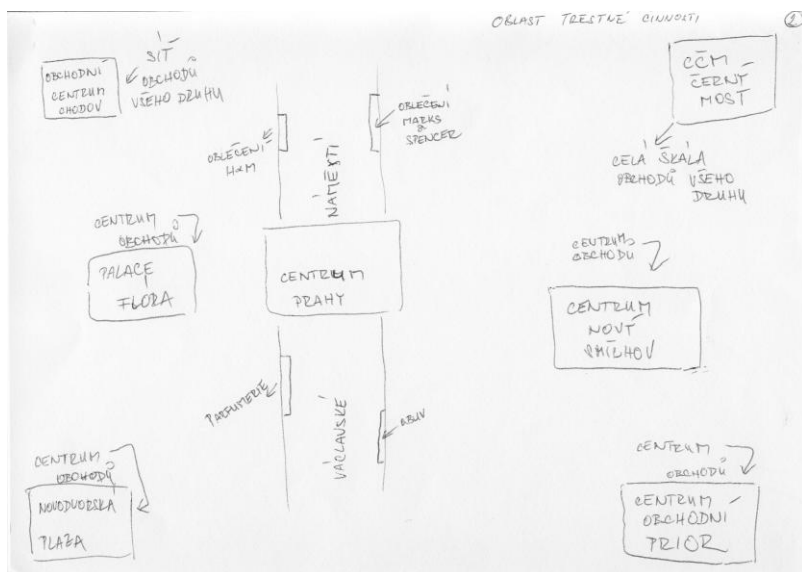 OBLAST TRESTNÉ CINNOSTI
2
OBCHODNÍ
CENTRUM
CHODOV
SÍŤ
OBCHODŮ
VŠEHO DRUHU
OBLEČENÍ
H&M
NÁMĚSTÍ
OBLEČENÍ
MARKS
&
SPENCER
CČM
ČERNÝ
MOST
CELÁ ŠKÁLA
OBCHODŮ VŠEHO
DRUHU
CENTRUM
OBCHODŮ
PALACE
FLORA
CENTRUM
PRAHY
CENTRUM
OBCHODU
CENTRUM
NOVÝ
SMÍCHOV
PARFUMERIE
VÁCLAVSKÉ
OBUV
CENTRUM
OBCHODŮ
NOVODVORSKÁ
PLAZA
CENTRUM
OBCHODŮ
CENTRUM
OBCHODNI
PRIOR